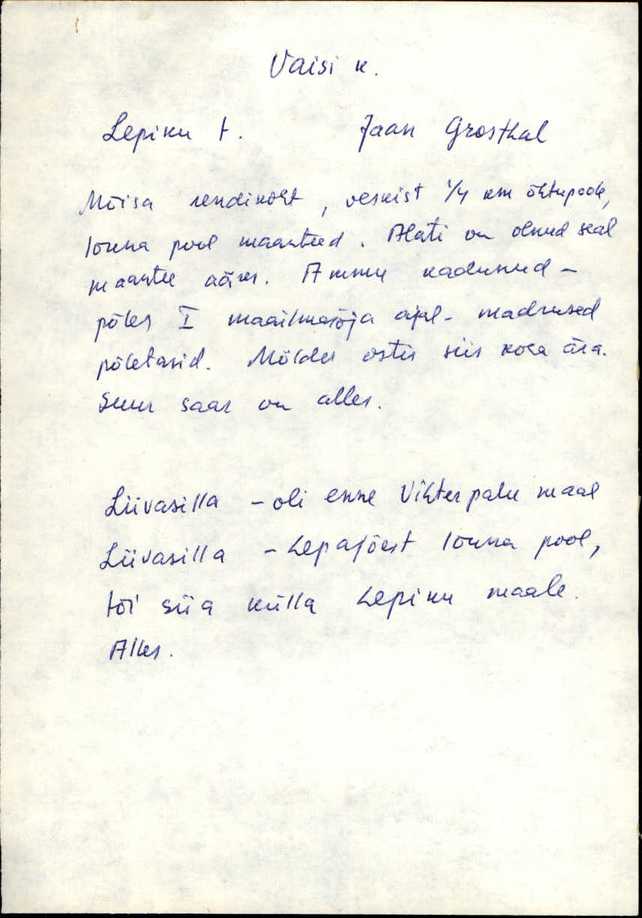 Vaisi k.
Lepiku t. Jaan Grosthal
Mõisa rendikoht, veskist 1/4 km õhtupoole,
lõuna pool maanteed. Alati on olnud seal
maantee ääres. Ammu kadunud -
põles I maailmasõja ajal - madrused
põletasid. Mölder ostis siis koha ära.
Suur saar on alles.
Liivasilla - oli enne Vihterpalu maal
Liivasilla - Lepajõest lõuna pool,
tõi siia külla Lepiku maale.
Alles.